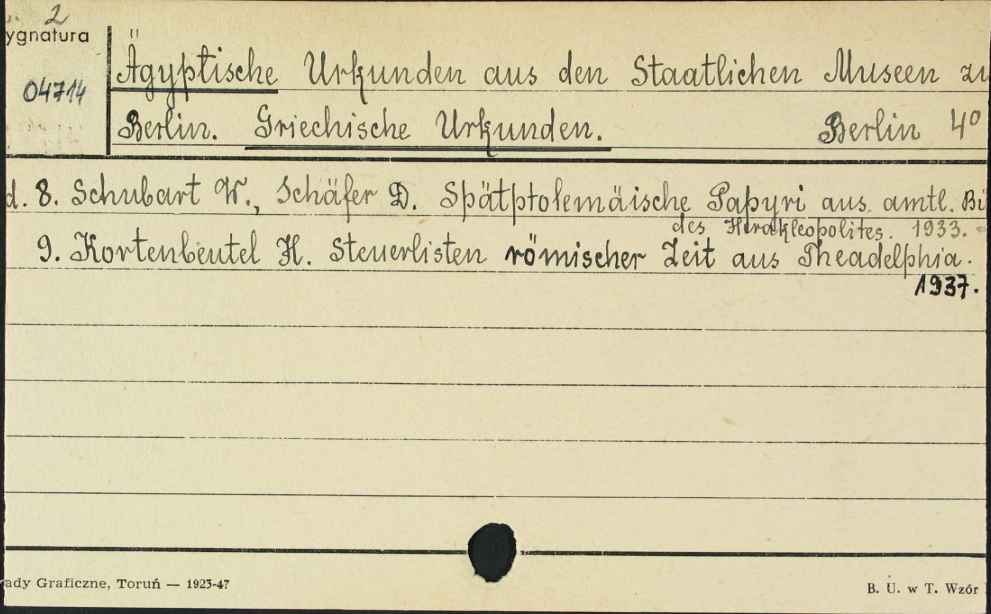 2
ygnatura
04714
Ägyptische Urkunden aus den Staatlichen Museen zu
Berlin. Griechische Urkunden. Berlin 4°
d. 8. Schubart W., Schäfer D. Spätptolemäische Papyri aus amtl. Bü
des Herakleopolites. 1933.
9. Kortenbeutel H. Steuerlisten römischer Zeit aus Theadelphia.
1937.
ady Graficzne, Toruń — 1923-47
B. U. w T. Wzór